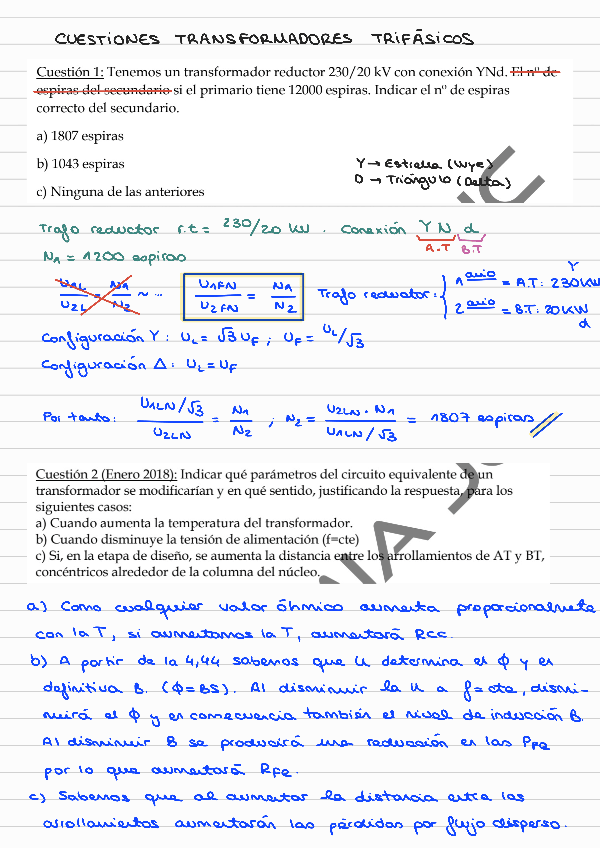 CUESTIONES TRANSFORMADORES TRIFÁSICOS
Cuestión 1: Tenemos un transformador reductor 230/20 kV con conexión YNd. El nº de
espiras del secundario si el primario tiene 12000 espiras. Indicar el nº de espiras
correcto del secundario.
a) 1807 espiras
b) 1043 espiras
Y → Estrella (Wye)
D → Triángulo (Delta)
c) Ninguna de las anteriores
Trafo reductor r.t = 230/20 kV . Conexión Y N d
A.T B.T
N1 = 1200 espiras
U1L/U2L = N1/N2 ~ ...
U1FN/U2FN = N1/N2
Trafo reductor: { 1ario = A.T: 230KW Y
2ario = B.T: 20KW d
Configuración Y: UL = √3 UF ; UF = UL/√3
Configuración Δ: UL = UF
Por tanto: U1LN/√3 / U2LN = N1/N2 ; N2 = U2LN · N1 / U1LN/√3 = 1807 espiras
Cuestión 2 (Enero 2018): Indicar qué parámetros del circuito equivalente de un
transformador se modificarían y en qué sentido, justificando la respuesta, para los
siguientes casos:
a) Cuando aumenta la temperatura del transformador.
b) Cuando disminuye la tensión de alimentación (f=cte)
c) Si, en la etapa de diseño, se aumenta la distancia entre los arrollamientos de AT y BT,
concéntricos alrededor de la columna del núcleo.
a) Como cualquier valor óhmico aumenta proporcionalmente
con la T, si aumentamos la T, aumentará Rcc.
b) A partir de la 4,44 sabemos que U determina el ϕ y en
definitiva B. (ϕ=BS). Al disminuir la U a f=cte, dismi-
nuirá el ϕ y en consecuencia también el nivel de inducción B.
Al disminuir B se producirá una reducción en las PFe
por lo que aumentará RFe.
c) Sabemos que al aumentar la distancia entre los
arrollamientos aumentarán las pérdidas por flujo disperso.